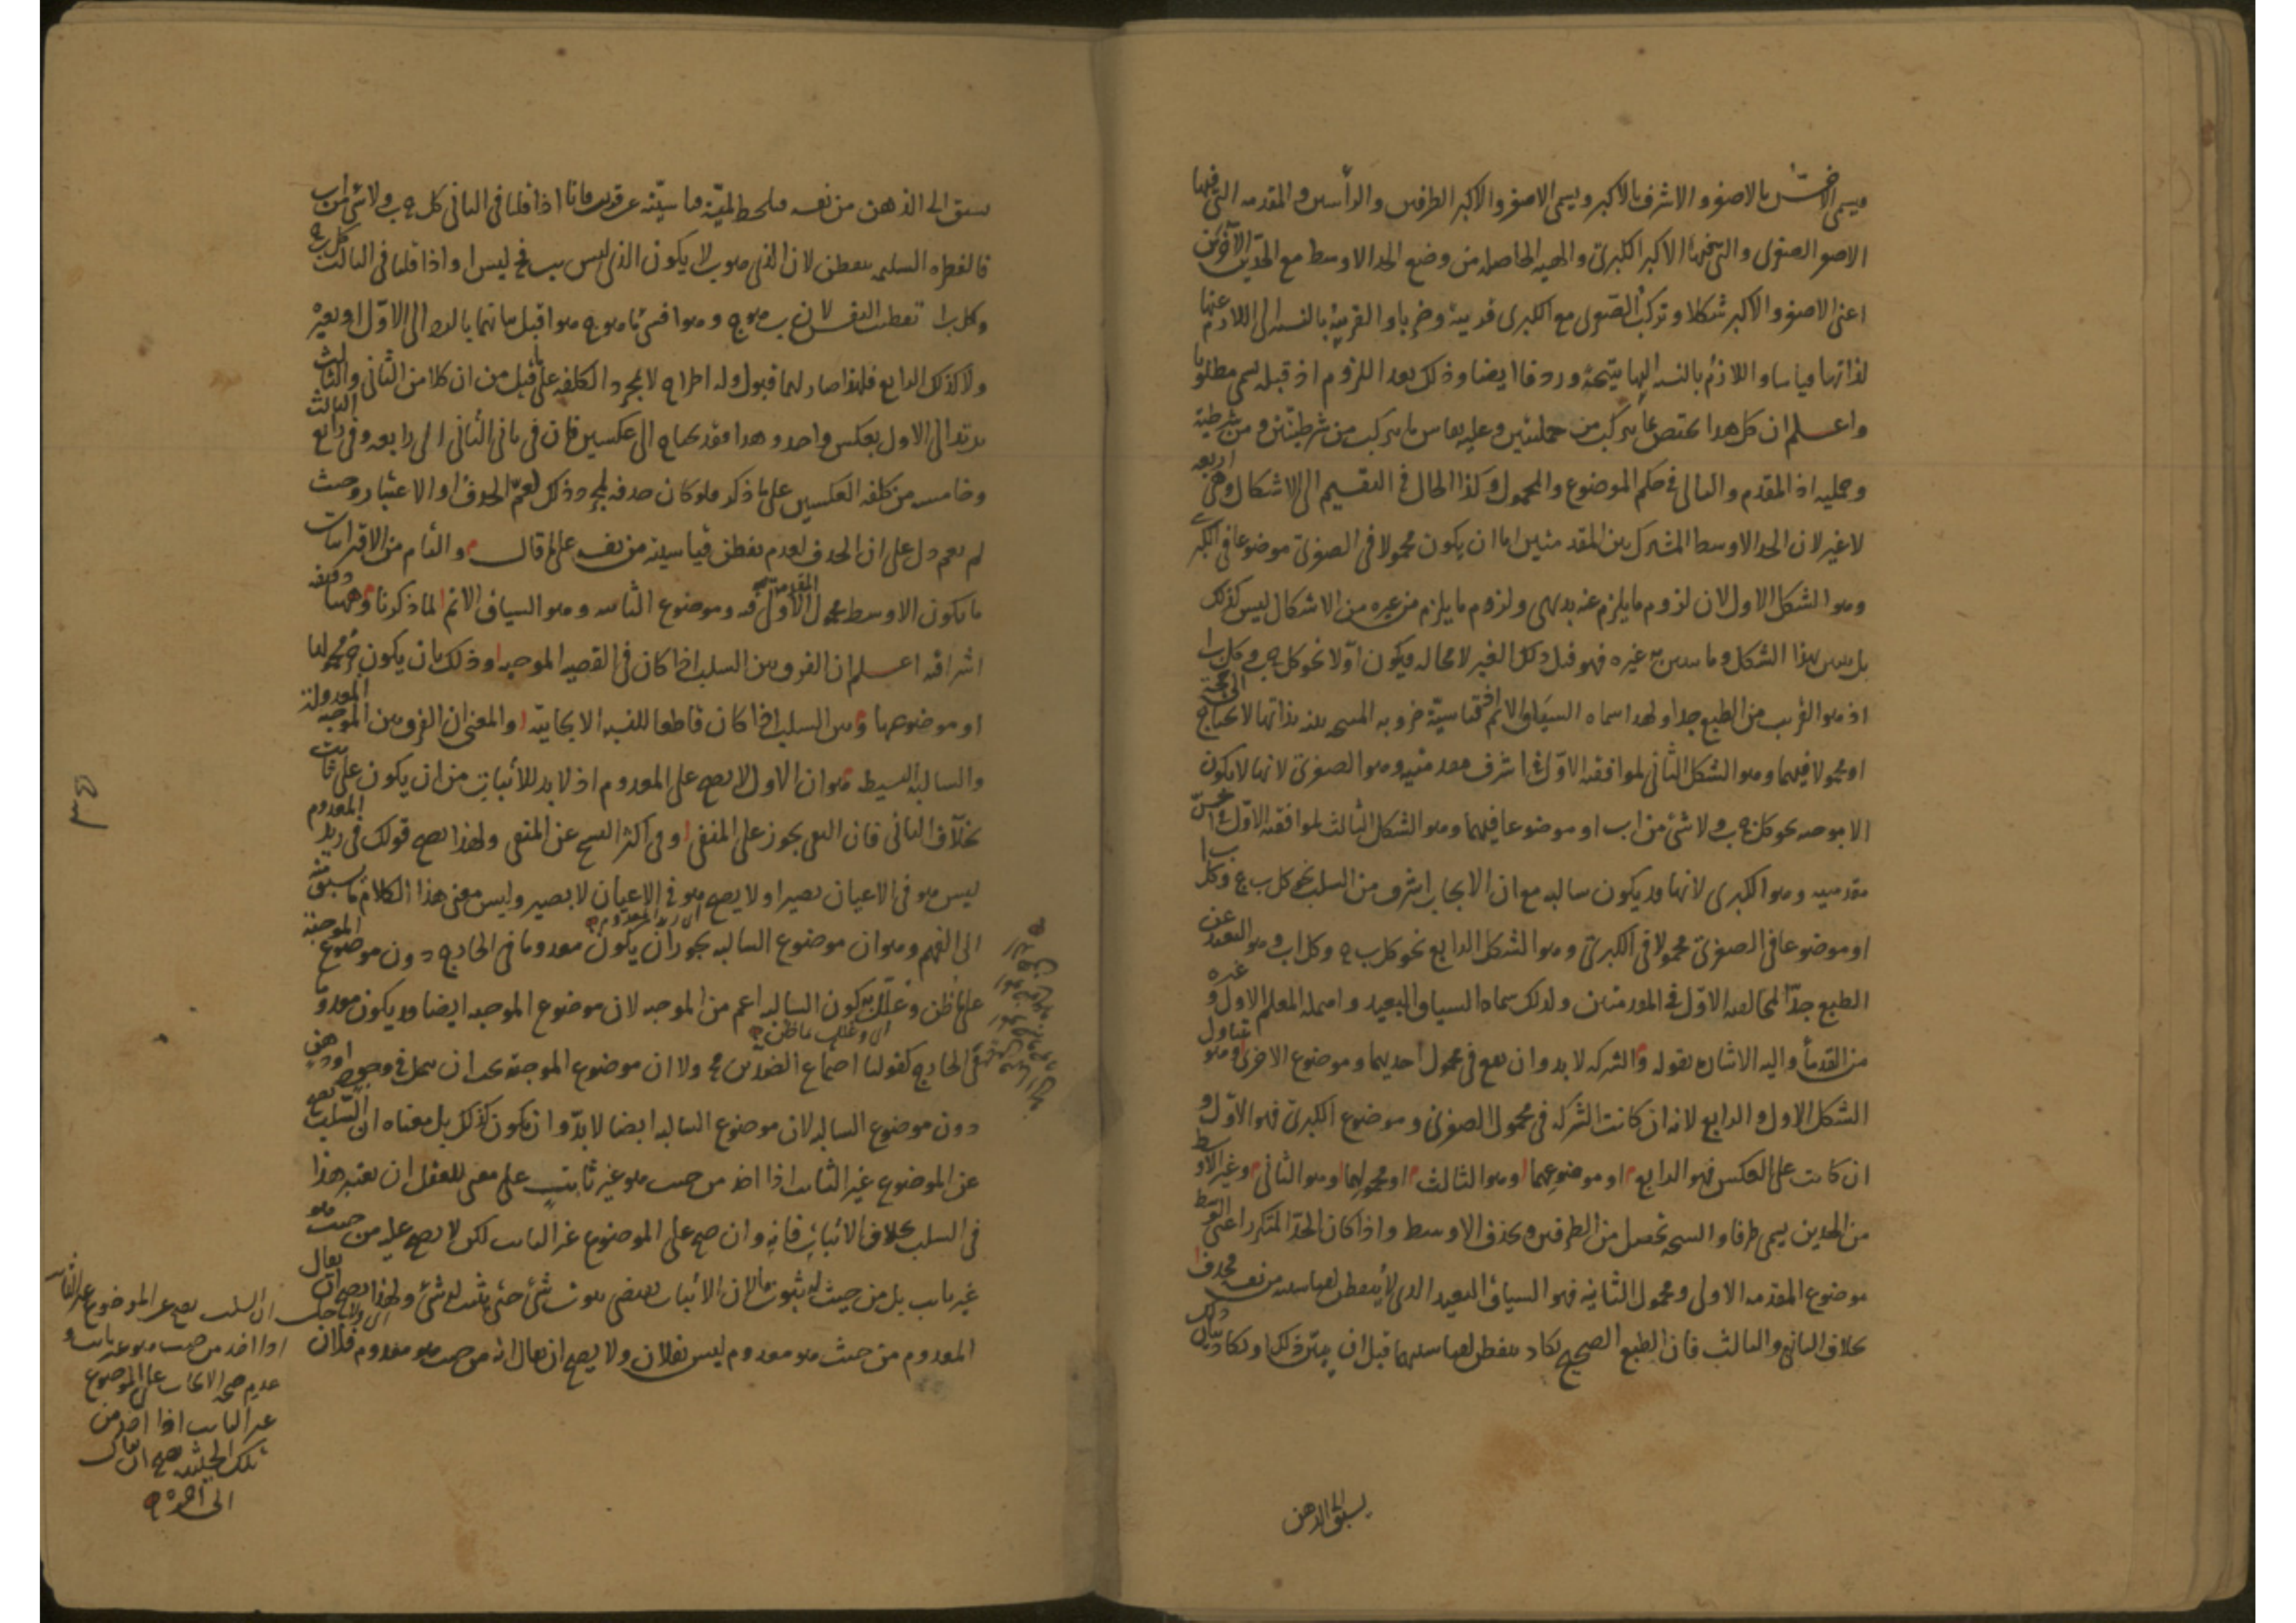 ويسمى الاخسّ بالاصغر والاشرف بالاكبر ويسمى الاصغر والاكبر الطرفين والرأسين والمقدمه التى فيها
الاصغر الصغرى والتى فيها الاكبر الكبرى والهيه الحاصله من وضع الحد الاوسط مع الحدّين الآخرين
اعنى الاصغر والاكبر شكلا وتركب الصغرى مع الكبرى قرينة وضربا والقرينة بالنسبه الى اللازم عنها
لذاتها قياسا واللازم بالنسبه اليها نتيجة وردفا ايضا وذلك بعد اللزوم اذ قبله يسمى مطلوبا
واعلم ان كل هذا يختص بما يتركب من حمليتين وعليه يقاس ما يتركب من شرطيتين ومن شرطية
وحمليه اذ المقدم والتالى فى حكم الموضوع والمحمول وكذا الحال فى التقسيم الى الاشكال وهى اربعه
لا غير لان الحد الاوسط المشترك بين المقدمتين اما ان يكون محمولا فى الصغرى موضوعا فى الكبرى
وهو الشكل الاول لان لزوم ما يلزم عنه بديهى ولزوم ما يلزم من غيره من الاشكال ليس كذلك
بل يبين بهذا الشكل وما يبين به غيره فهو قبل ذلك الغير لا محاله فيكون اوّلا نحو كل ج ب وكل ب ا
اذ هو القريب من الطبع جدا ولهذا سماه السياق الاتم فقياسيّة ضروبه المنتجه بينه بذاتها لا يحتاج الى حجة
او محمولا فيهما وهو الشكل الثانى لموافقته الاوّل فى اشرف مقدمتيه وهو الصغرى لانها لا يكون
الا موجبه نحو كل ج ب ولا شئ من ا ب او موضوعا فيهما وهو الشكل الثالث لموافقته الاوّل فى اخسّ
مقدمتيه وهو الكبرى لانها قد يكون سالبه مع ان الايجاب اشرف من السلب نحو كل ب ج وكل ب ا
او موضوعا فى الصغرى محمولا فى الكبرى وهو الشكل الرابع نحو كل ب ج وكل ا ب وهو البعيد عن
الطبع جدّا لمخالفته الاوّل فى المقدمتين ولذلك سماه السياق البعيد واهمله المعلم الاول وغيره
من القدمأ واليه الاشاره بقوله والشركه لا بد وان يقع فى محمول احديهما وموضوع الاخرى وهو يتناول
الشكل الاول والرابع لانه ان كانت الشركه فى محمول الصغرى وموضوع الكبرى فهو الاوّل و
ان كانت على العكس فهو الرابع او موضوعهما وهو الثالث او محمولهما وهو الثانى وغير الاوسط
من الحدين يسمى طرفا والنتيجه تحصل من الطرفين ويحذف الاوسط واذا كان الحدّ المتكرر اعنى الاوسط
موضوع المقدمه الاولى ومحمول الثانيه فهو السياق البعيد الذى لا يتفطن لقياسيته من نفسه فحذف
بخلاف الثانى والثالث فان الطبع الصحيح يكاد يتفطن لقياسيتهما قبل ان يبيّن ذلك او يكاد بيان ذلك
يسبق الى الذهن
يسبق الى الذهن من نفسه فيلحظ لمّية قياسيّته عن قريب فانا اذا قلنا فى الثانى كل ج ب ولا شئ من ا ب
فالفطره السليمه يتفطن لان الذى هو ب لا يكون الذى ليس ب فج ليس ا واذا قلنا فى الثالث كل ب ج
وكل ب ا تفطنت النفس لان ب هو ج وهو ا فشئ ما هو ج هو ا قبل بيانهما بالرد الى الاوّل او بغيره
ولا كذلك الرابع فلهذا صار لهما قبول وله اطراح لا لمجرد الكلفه على ما قيل من ان كلا من الثانى والثالث
يرتد الى الاول بعكس واحد وهذا قد يحتاج الى عكسين فان فى ثانى الثانى الى رابعه وفى رابع الثالث
وخامسه من كلفه العكسين على ما ذكر فلو كان حذفه لمجرد ذلك لعمّ الحذف او الاعتبار وحيث
لم يعم دل على ان الحذف لعدم تفطن قياسيته من نفسه على ما قال والتام من الاقترانيات
ما يكون الاوسط محمول المقدمة الاولى فيه وموضوع الثانيه وهو السياق الاتم لما ذكرنا وههنا دقيقه
اشراقيه اعلم ان الفرق بين السلب اذا كان فى القضيه الموجبه وذلك بان يكون جزء محمولها
او موضوعها وبين السلب اذا كان قاطعا للنسبه الايجابيّة والمعنى ان الفرق بين الموجبه المعدولة
والسالبة البسيطه هو ان الاول لا يصح على المعدوم اذ لا بد للاثبات من ان يكون على ثابت
بخلاف الثانى فان النفى يجوز على المنفى وفى اكثر النسخ عن المنفى ولهذا يصح قولك فى زيد المعدوم
ليس هو فى الاعيان بصيرا ولا يصح هو فى الاعيان لا بصير وليس معنى هذا الكلام ما يسبق منه
الى الفهم وهو ان موضوع السالبه يجوز ان يكون معدوما فى الخارج دون موضوع الموجبة
على ما ظن وعلّل به كون السالبه اعم من الموجبه لان موضوع الموجبه ايضا قد يكون معدوما
فى الخارج كقولنا اجتماع الضدّين مح ولا ان موضوع الموجبة يجب ان يتمثل فى وجود او ذهن
دون موضوع السالبه لان موضوع السالبه ايضا لا بدّ وان يكون كذلك بل معناه ان السّلب يصح
عن الموضوع غير الثابت اذا اخذ من حيث هو غير ثابت على معنى للعقل ان يعتبر هذا
فى السلب بخلاف الاثبات فانه وان صح على الموضوع غير الثابت لكن لا يصح عليه من حيث هو
غير ثابت بل من حيث له ثبوت ما لان الاثبات يقتضى ثبوت شئ حتى يثبت له شئ ولهذا يصح ان يقال
المعدوم من حيث هو معدوم ليس بفلان ولا يصح ان يقال انه من حيث هو معدوم فلان
اى زيد المعدوم
اى وعلل ما ظن
ان السلب يصح عن الموضوع غير الثابت
اذا اخذ من حيث هو غير ثابت و
عدم صحه الايجاب على الموضوع
غير الثابت اذا اخذ من
تلك الحيثيه يصح ان يقال
الى آخره